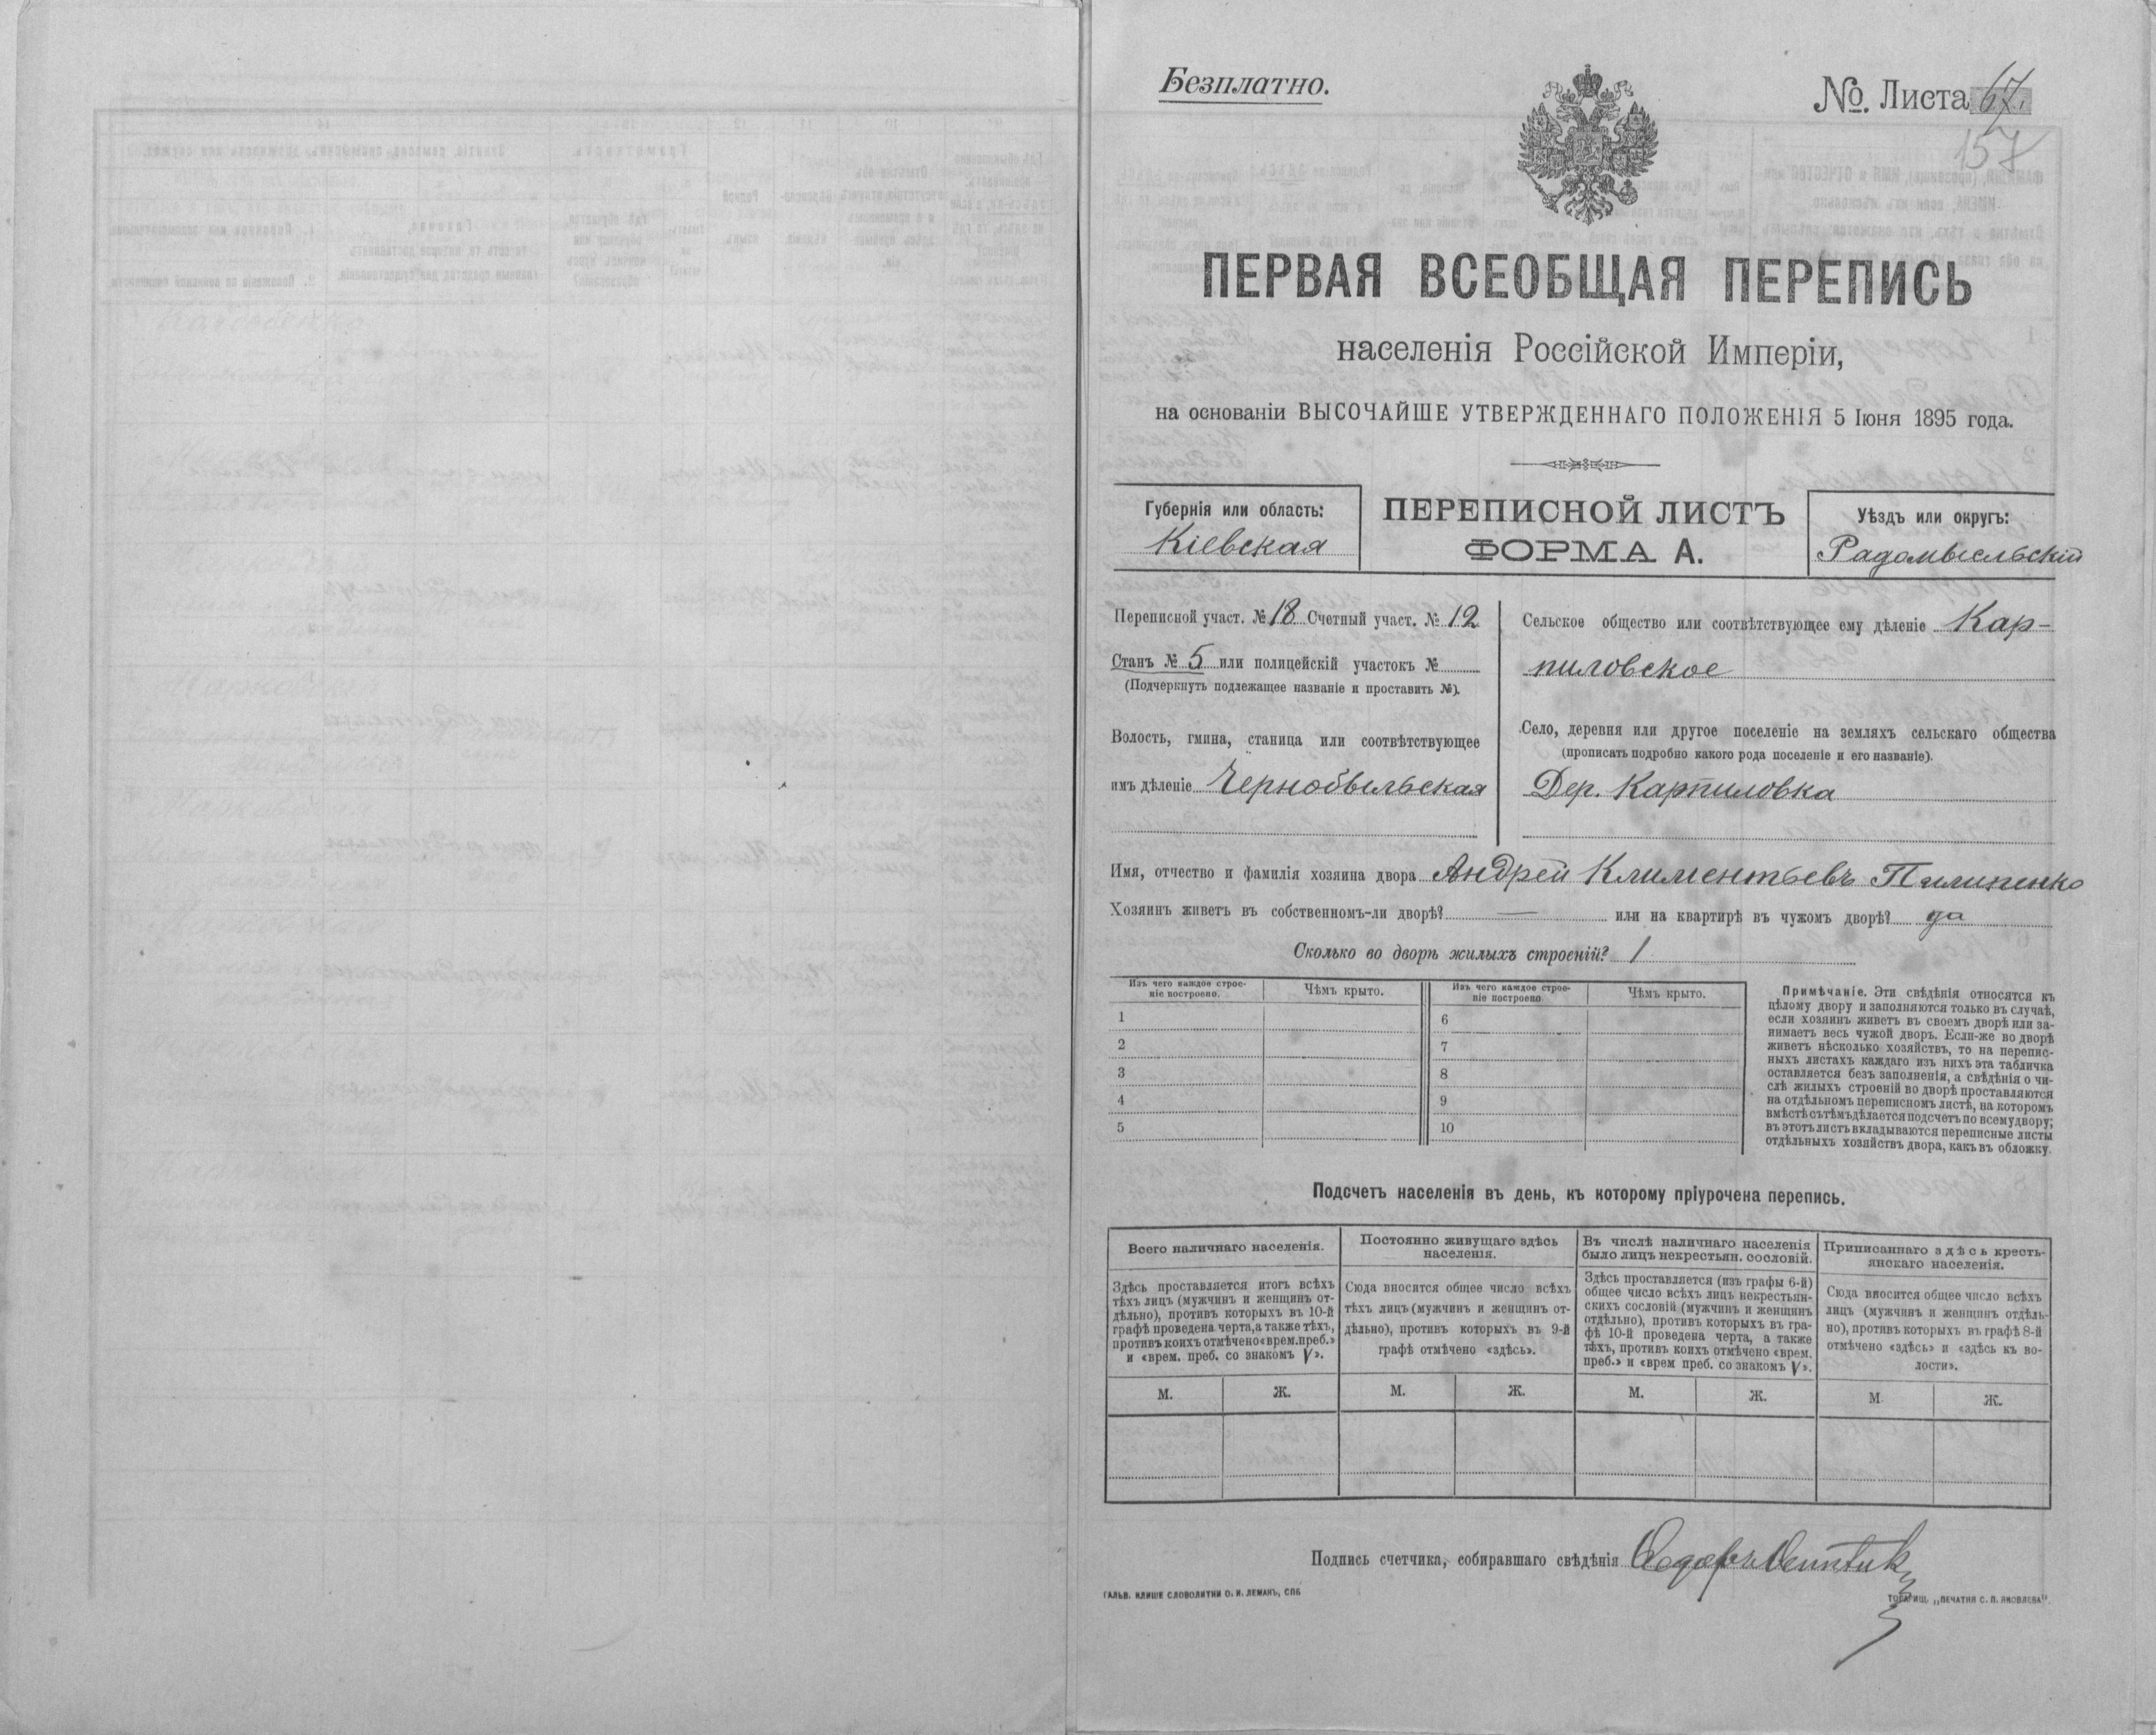 Безплатно.
№. Листа 67.
157
ПЕРВАЯ ВСЕОБЩАЯ ПЕРЕПИСЬ
населенія Россійской Имперіи,
на основаніи ВЫСОЧАЙШЕ УТВЕРЖДЕННАГО ПОЛОЖЕНІЯ 5 Іюня 1895 года.
Губернія или область:
Кіевская
ПЕРЕПИСНОЙ ЛИСТЪ
ФОРМА А.
Уѣздъ или округъ:
Радомысльскій
Переписной участ. № 18 Счетный участ. № 12
Станъ № 5 или полицейскій участокъ №
(Подчеркнуть подлежащее названіе и проставить №).
Волость, гмина, станица или соотвѣтствующее
имъ дѣленіе Чернобыльская
Сельское общество или соотвѣтствующее ему дѣленіе Кар-
пиловское
Село, деревня или другое поселеніе на земляхъ сельскаго общества
(прописать подробно какого рода поселеніе и его названіе).
Дер. Карпиловка
Имя, отчество и фамилія хозяина двора Андрей Климентьевъ Пилипенко
Хозяинъ живетъ въ собственномъ-ли дворѣ? — или на квартирѣ въ чужомъ дворѣ? да
Сколько во дворѣ жилыхъ строеній? 1
Изъ чего каждое строе-
ніе построено.
Чѣмъ крыто.
Изъ чего каждое строе-
ніе построено
Чѣмъ крыто.
1
2
3
4
5
6
7
8
9
10
Примѣчаніе. Эти свѣдѣнія относятся къ
цѣлому двору и заполняются только въ случаѣ,
если хозяинъ живетъ въ своемъ дворѣ или за-
нимаетъ весь чужой дворъ. Если-же во дворѣ
живетъ нѣсколько хозяйствъ, то на перепис-
ныхъ листахъ каждаго изъ нихъ эта табличка
оставляется безъ заполненія, а свѣдѣнія о чи-
слѣ жилыхъ строеній во дворѣ проставляются
на отдѣльномъ переписномъ листѣ, на которомъ
вмѣстѣ съ тѣмъ дѣлается подсчетъ по всему двору;
въ этотъ листъ вкладываются переписные листы
отдѣльныхъ хозяйствъ двора, какъ въ обложку.
Подсчетъ населенія въ день, къ которому пріурочена перепись.
Всего наличнаго населенія.
Здѣсь проставляется итогъ всѣхъ
тѣхъ лицъ (мужчинъ и женщинъ от-
дѣльно), противъ которыхъ въ 10-й
графѣ проведена черта, а также тѣхъ,
противъ коихъ отмѣчено «врем. преб.»
и «врем. преб. со знакомъ V».
М.
Ж.
Постоянно живущаго здѣсь
населенія.
Сюда вносится общее число всѣхъ
тѣхъ лицъ (мужчинъ и женщинъ от-
дѣльно), противъ которыхъ въ 9-й
графѣ отмѣчено «здѣсь».
М.
Ж.
Въ числѣ наличнаго населенія
было лицъ некрестьян. сословій.
Здѣсь проставляется (изъ графы 6-й)
общее число всѣхъ лицъ некрестьян-
скихъ сословій (мужчинъ и женщинъ
отдѣльно), противъ которыхъ въ гра-
фѣ 10-й проведена черта, а также
тѣхъ, противъ коихъ отмѣчено «врем.
преб.» и «врем преб. со знакомъ V».
М.
Ж.
Приписаннаго здѣсь кресть-
янскаго населенія.
Сюда вносится общее число всѣхъ
лицъ (мужчинъ и женщинъ отдѣль-
но), противъ которыхъ въ графѣ 8-й
отмѣчено «здѣсь» и «здѣсь къ во-
лости».
М
Ж.
Подпись счетчика, собиравшаго свѣдѣнія
ГАЛЬВ. КЛИШЕ СЛОВОЛИТНИ О. И. ЛЕМАНЪ, СПБ
ТОВАРИЩ. „ПЕЧАТНЯ С. П. ЯКОВЛЕВА"